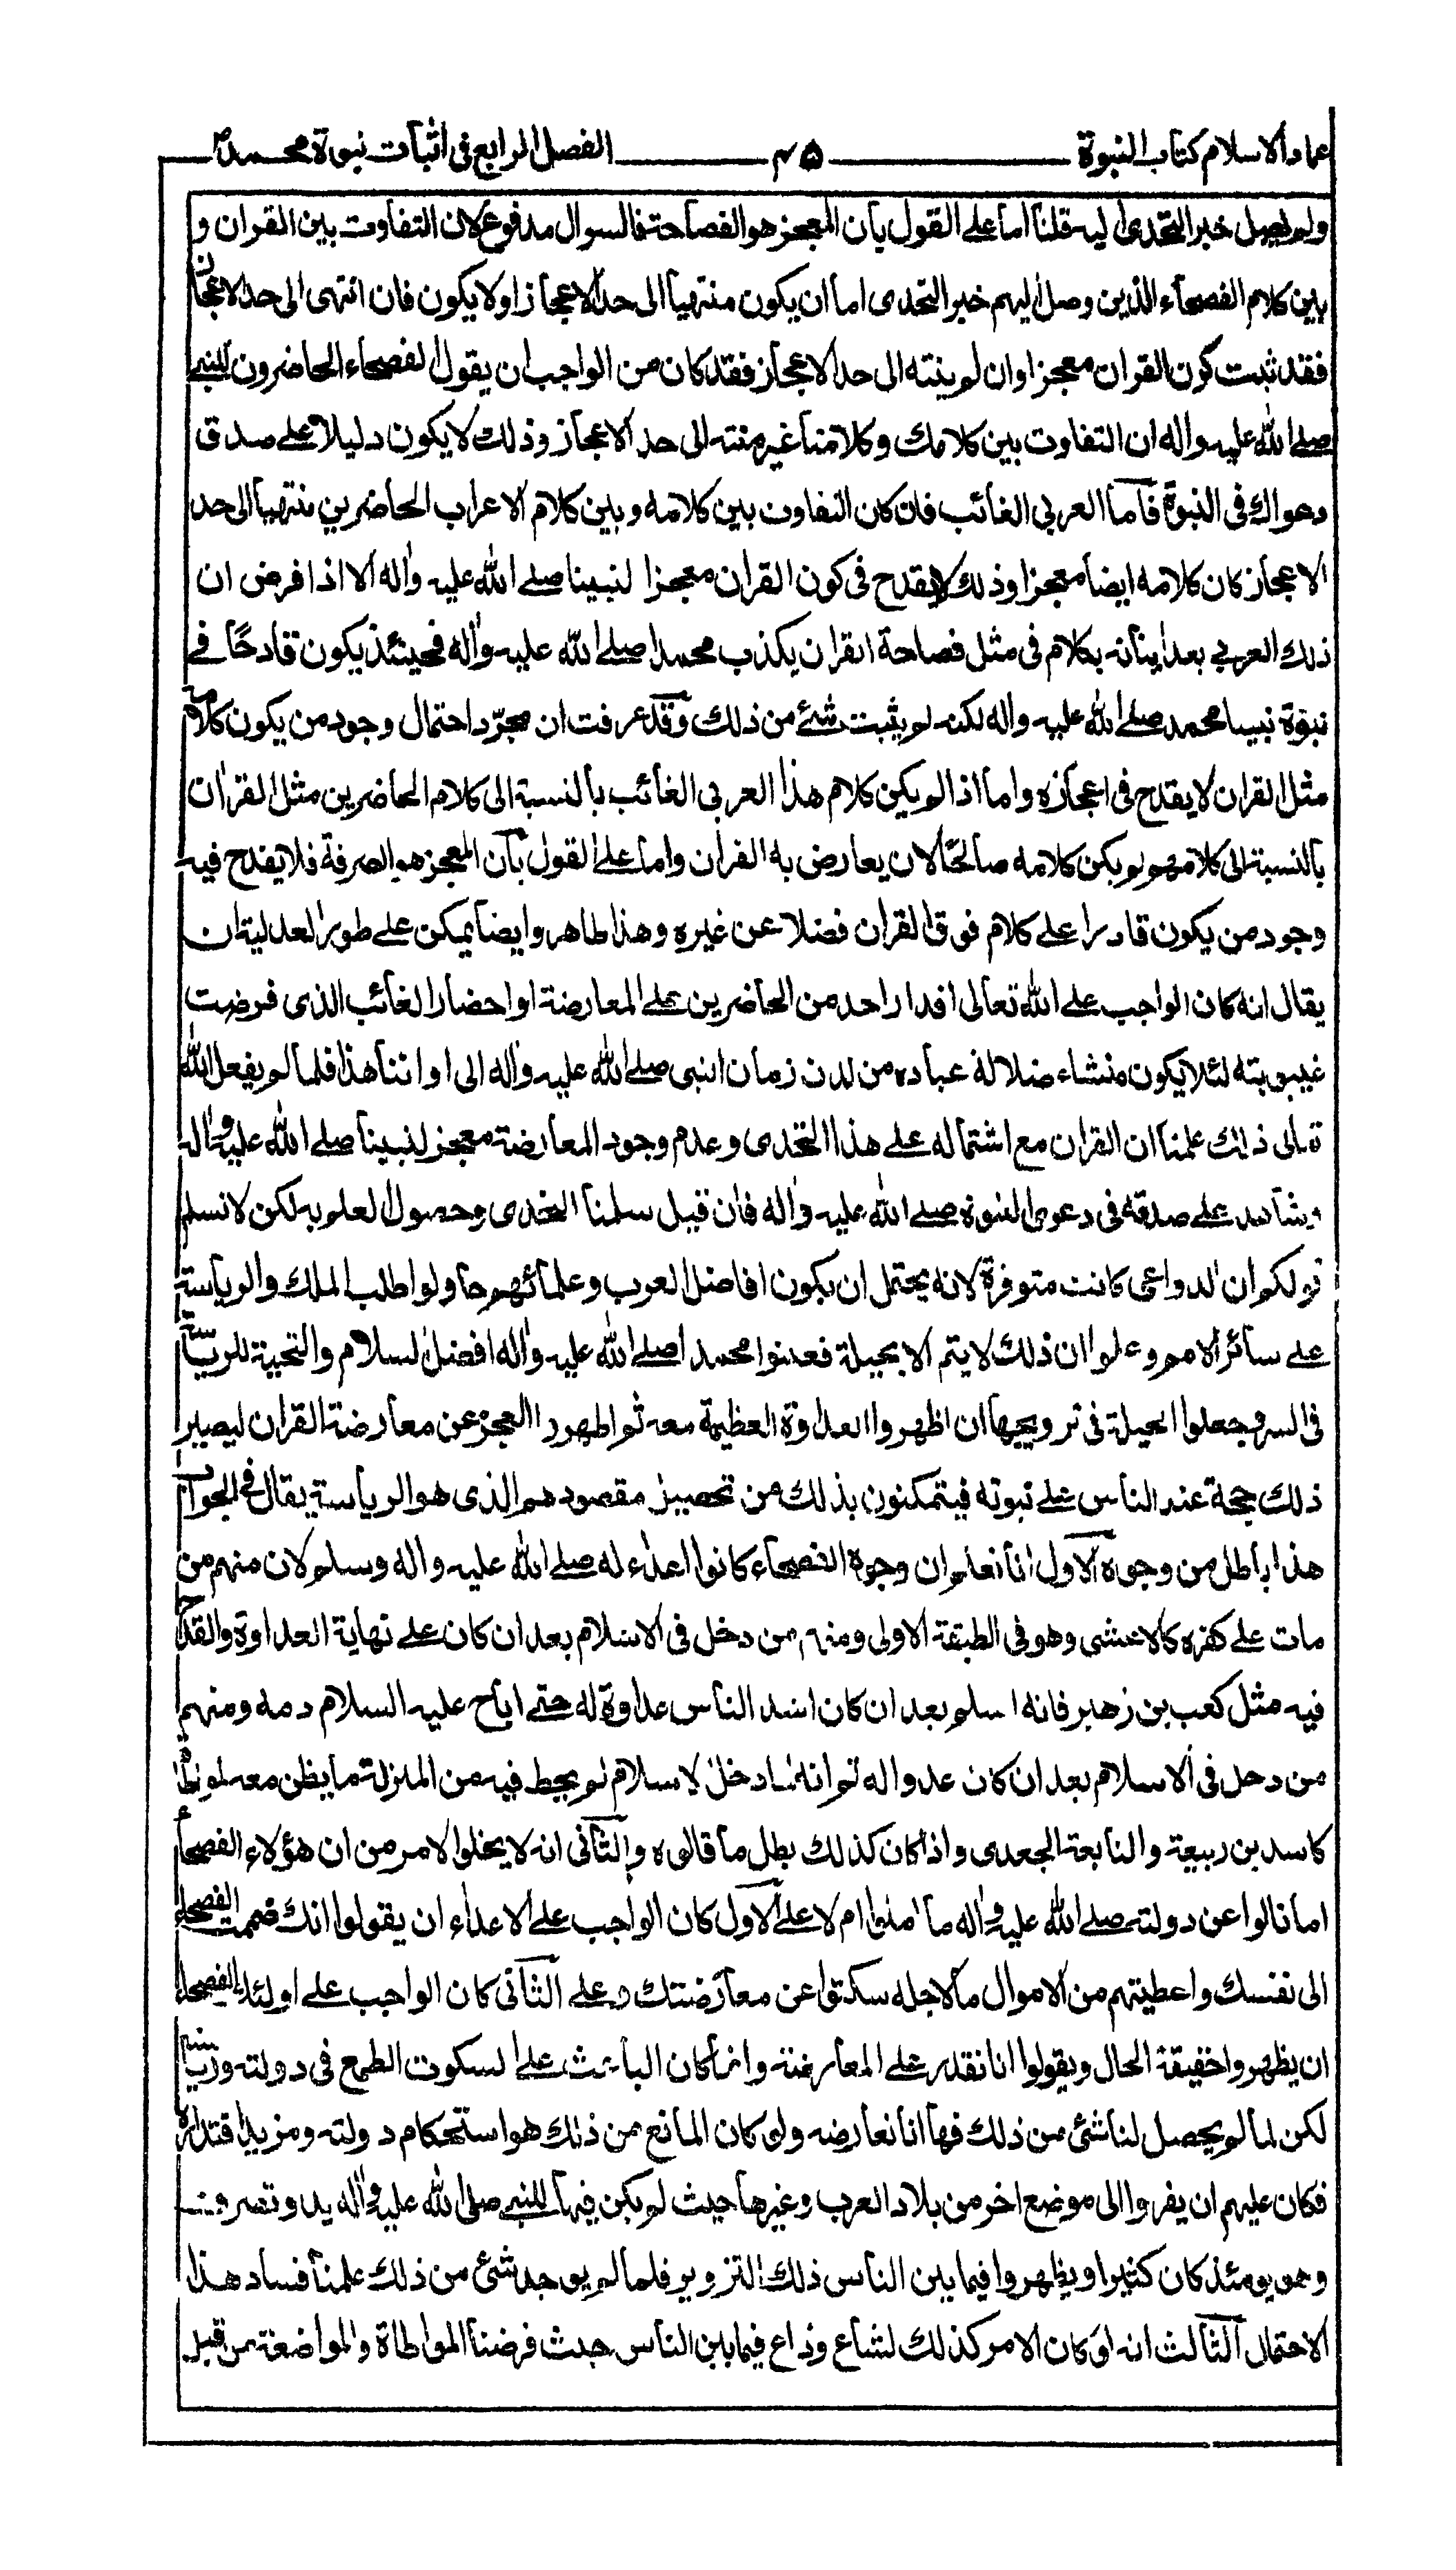 عماد الاسلام كتاب النبوة ــــ ۴۵ ــــ الفصل الرابع فى اثبات نبوة محمد ص
ولم يصل خبر التحدى اليه قلنا اما على القول بان المعجز هو الفصاحة فالسوال مدفوع لان التفاوت بين القران و
بين كلام الفصحاء الذين وصل اليهم خبر التحدى اما ان يكون منتهيا الى حد الاعجاز اولا يكون فان انتهى الى حد الاعجاز
فقد ثبت كون القران معجزا وان لم ينته الى حد الاعجاز فقد كان من الواجب ان يقول الفصحاء الحاضرون للنبى
صلى الله عليه واله ان التفاوت بين كلامك وكلامنا غير منته الى حد الاعجاز وذلك لا يكون دليلا على صدق
دعواك فى النبوة فاما العربى الغائب فان كان التفاوت بين كلامه وبين كلام الاعراب الحاضرين منتهيا الى حد
الاعجاز كان كلامه ايضا معجزا وذلك لا يقدح فى كون القران معجزا لنبينا صلى الله عليه واله الا اذا فرض ان
ذلك العربى بعد اتيانه بكلام فى مثل فصاحة القران يكذب محمدا صلى الله عليه واله فحينئذ يكون قادحًا فى
نبوة نبينا محمد صلى الله عليه واله لكنه لم يثبت شئ من ذلك وقد عرفت ان مجرّد احتمال وجود من يكون كلامه
مثل القران لا يقدح فى اعجازه واما اذا لم يكن كلام هذا العربى الغائب بالنسبة الى كلام الحاضرين مثل القران
بالنسبة الى كلامهم لم يكن كلامه صالحًا لان يعارض به القران واما على القول بان المعجز هو الصرفة فلا يقدح فيه
وجود من يكون قادرا على كلام فوق القران فضلا عن غيره وهذا ظاهر وايضا يمكن على طور العدلية ان
يقال انه كان الواجب على الله تعالى اقدار احد من الحاضرين على المعارضة او احضار الغائب الذى فرضت
غيبوبته لئلا يكون منشاء ضلالة عباده من لدن زمان النبى صلى الله عليه واله الى اواننا هذا فلما لم يفعل الله
تعالى ذلك علمنا ان القران مع اشتماله على هذا التحدى وعدم وجود المعارضة معجز لنبينا صلى الله عليه واله
وشاهد على صدقه فى دعوى النبوة صلى الله عليه واله فان قيل سلمنا التحدى وحصول العلم به لكن لا نسلم
قولكم ان الدواعى كانت متوفرة لانه يحتمل ان يكون افاضل العرب وعلمائهم حاولوا طلب الملك والرياسة
على سائر الامم وعلموا ان ذلك لا يتم الا بحيلة فعينوا محمدا صلى الله عليه واله افضل السلام والتحية للرياسة
فى السر وجعلوا الحيلة فى ترويجها ان اظهروا العداوة العظيمة معه ثم اظهروا العجز عن معارضة القران ليصير
ذلك حجة عند الناس على نبوته فيتمكنون بذلك من تحصيل مقصودهم الذى هو الرياسة يقال فى الجواب
هذا باطل من وجوه الاول انا نعلم ان وجوه الفصحاء كانوا اعداء له صلى الله عليه واله وسلم لان منهم من
مات على كفره كالاعشى وهو فى الطبقة الاولى ومنهم من دخل فى الاسلام بعد ان كان على نهاية العداوة والقدح
فيه مثل كعب بن زهير فانه اسلم بعد ان كان اشد الناس عداوة له حتى اباح عليه السلام دمه ومنهم
من دخل فى الاسلام بعد ان كان عدوا له ثم انه لما دخل الاسلام لم يحط فيه من المنزلة ما يظن معه
كاسد بن ربيعة والنابعة الجعدى واذا كان كذلك بطل ما قالوه والثانى انه لا يخلوا الامر من ان هؤلاء الفصحاء
اما نالوا عن دولته صلى الله عليه واله ما املوا ام لا على الاول كان الواجب على الاعداء ان يقولوا انك ضممت الفصحاء
الى نفسك واعطيتهم من الاموال ما لاجله سكتوا عن معارضتك وعلى الثانى كان الواجب على اولئك الفصحاء
ان يظهروا حقيقة الحال ويقولوا انا نقدر على المعارضة وانما كان الباعث على السكوت الطمع فى دولته ورياسته
لكن لما لم يحصل لنا شئ من ذلك فها انا نعارضه ولو كان المانع من ذلك هو استحكام دولته ومزيد اقتداره
فكان عليهم ان يفروا الى موضع اخر من بلاد العرب وغيرها حيث لم يكن فيها للنبى صلى الله عليه واله يد وتصرف
وهو يومئذ كان كثيرا ويظهروا فيما بين الناس ذلك التزوير فلما لم يوجد شئ من ذلك علمنا فساد هذا
الاحتمال الثالث انه لو كان الامر كذلك لشاع وذاع فيما بين الناس حيث فرضنا المواطاة والمواضعة من قبل